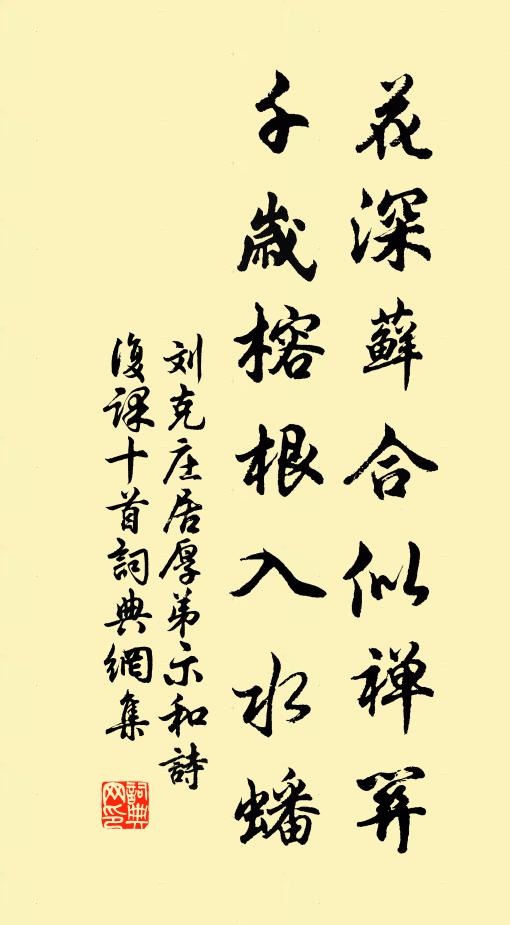 花深蘚合似禅關
千歲榕根入水蟠
刘克庄居厚弟示和詩
復課十首詞典網集
詞典
网印